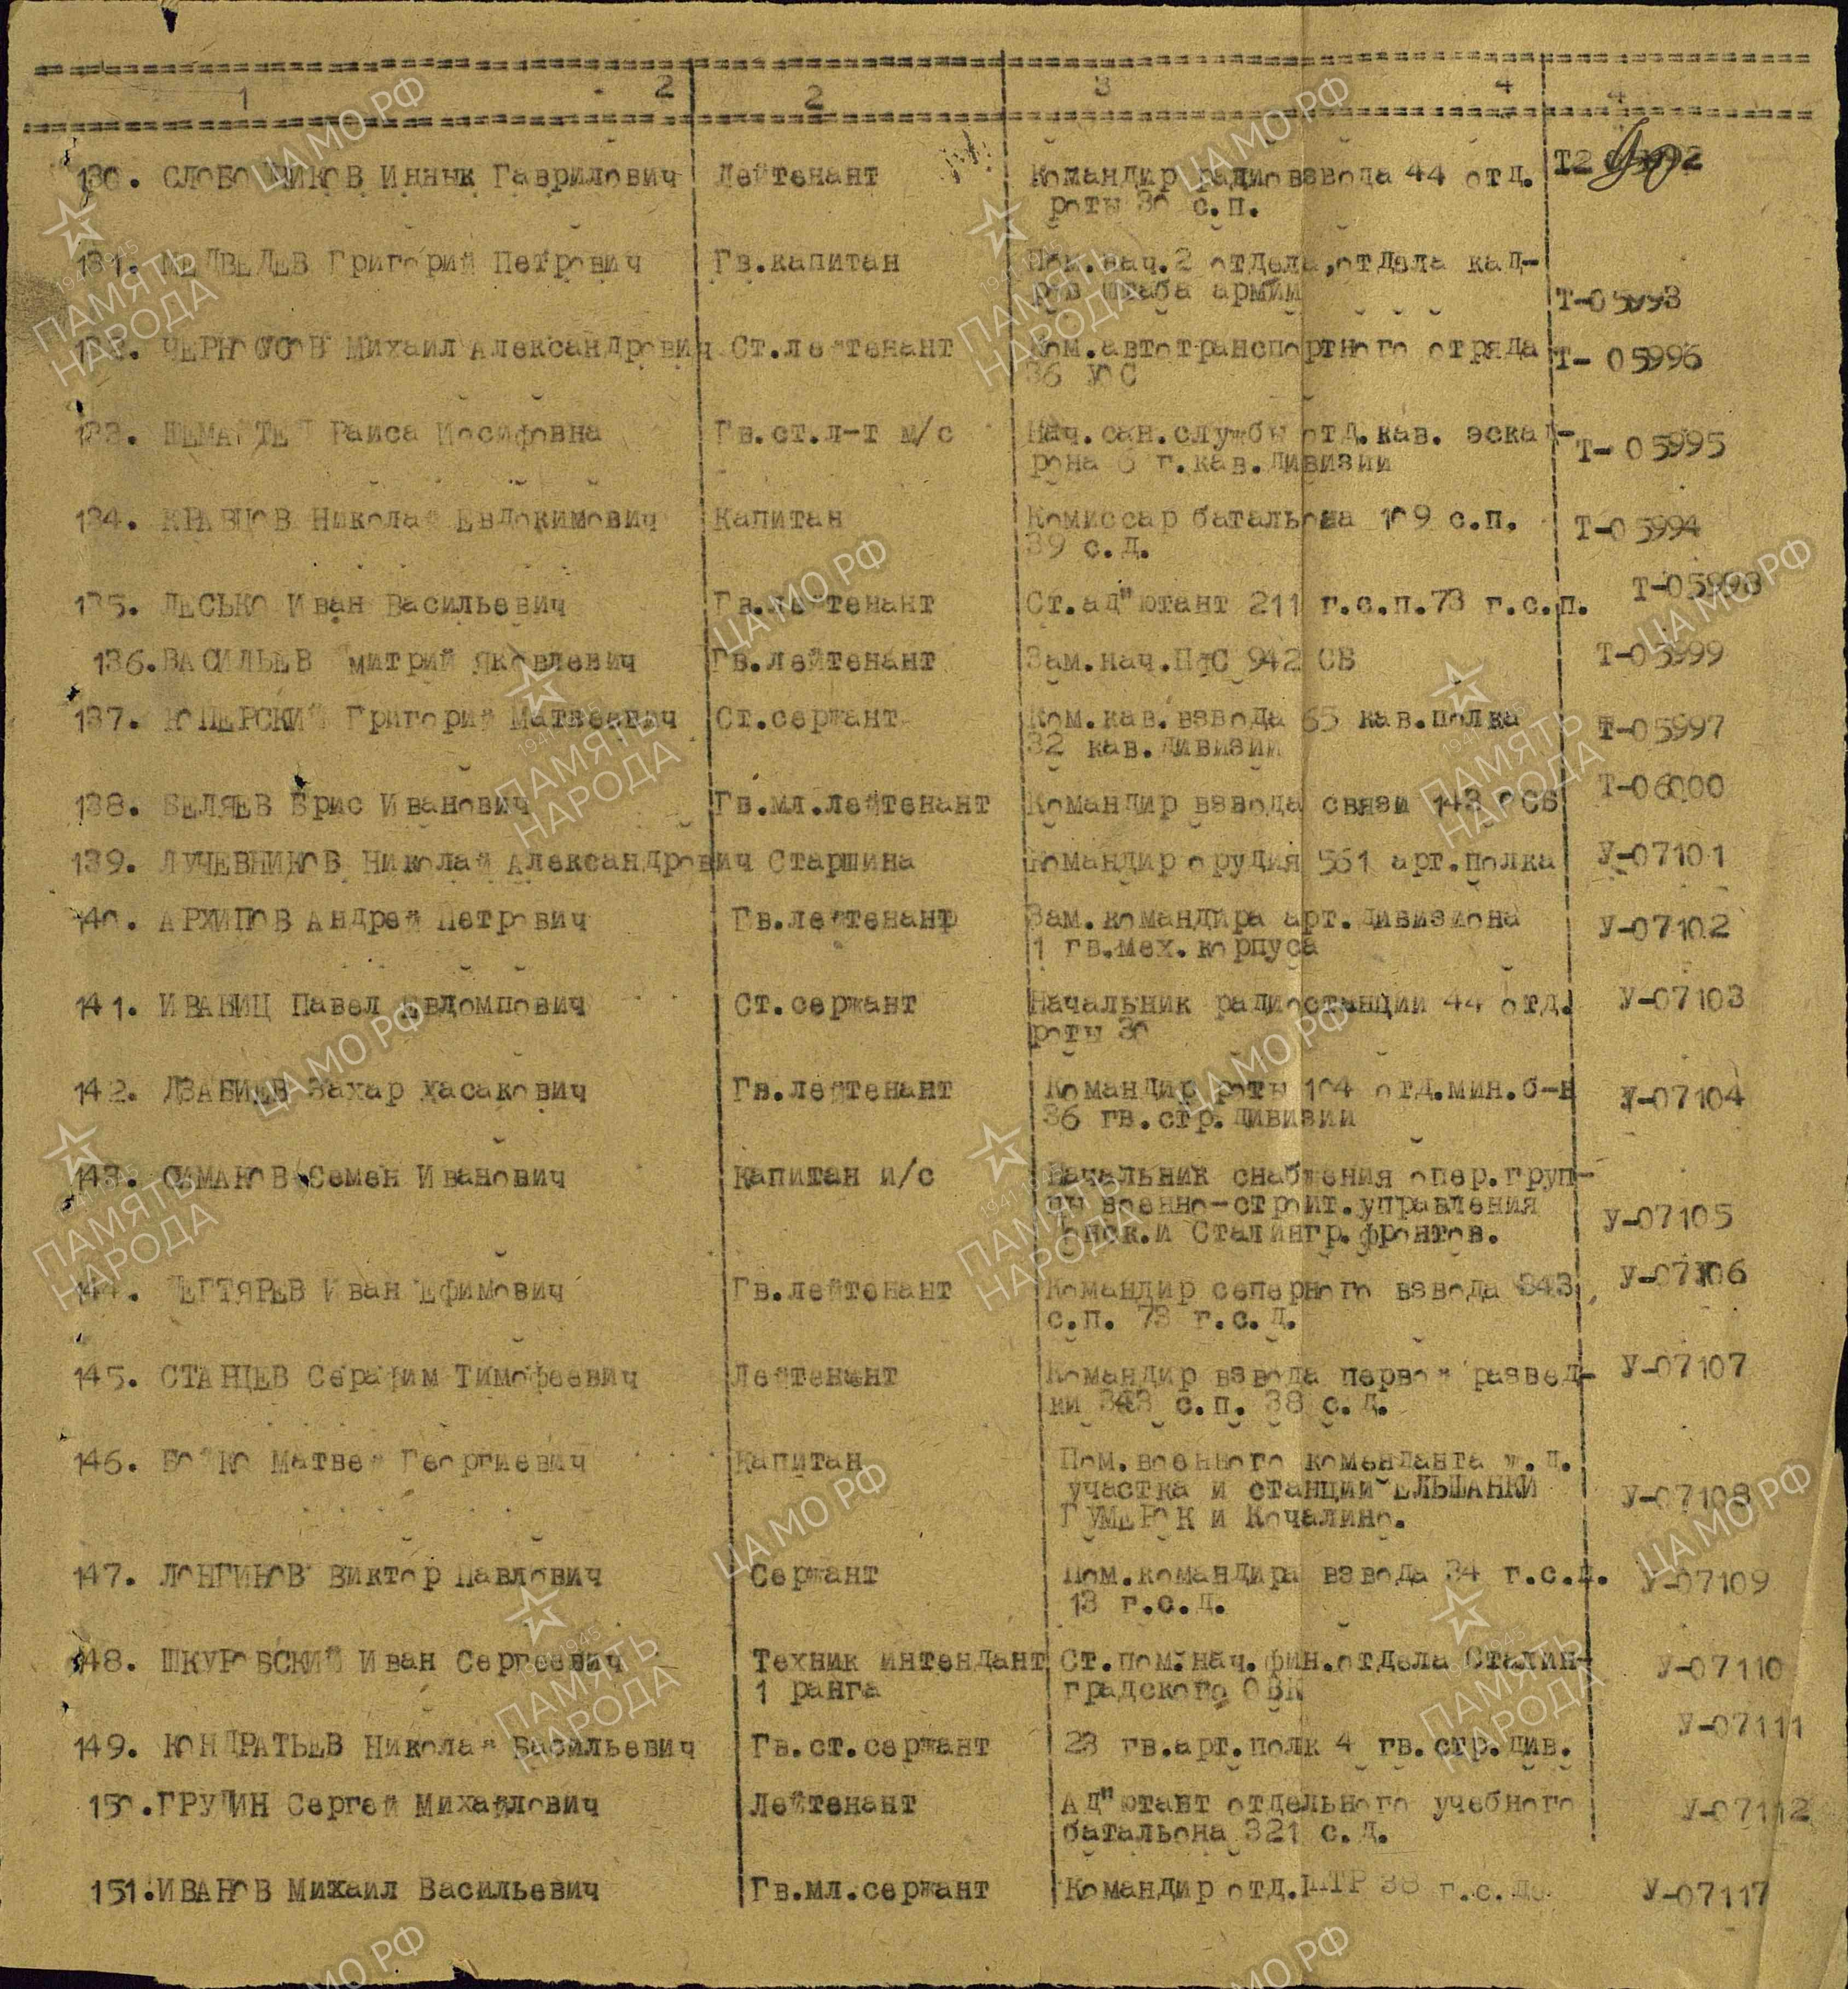 1 2 2 3 4 4
130. СЛОБО ЧИКОВ Иннык Гаврилович Лейтенант Командир радиовзвода 44 отд.
роты 30 с.п.
131. МЕДВЕДЕВ Григорий Петрович Гв.капитан Пом.нач.2 отдела,отдела кад-
ров штаба армии Т-05993
132. ЧЕРНОУСОВ Михаил Александрович Ст.лейтенант Ком.автотранспортного отряда Т- 05996
36 УОС
133. Раиса Иосифовна Гв.ст.л-т м/с Нач.сан.службы отд.кав. эскад- Т- 05995
рона 6 г.кав.дивизии
134. КРАВЦОВ Николай Евдокимович Капитан Комиссар батальона 109 с.п. Т-05994
39 с.д.
135. ЛЕСЬКО Иван Васильевич Гв.лейтенант Ст.ад"ютант 211 г.с.п.73 г.с.п. Т-05998
136.ВАСИЛЬЕВ митрий Яковлевич Гв.лейтенант Зам.нач.ПФС 942 СБ Т-05999
137. КОПЕРСКИЙ Григорий Матвеевич Ст.сержант Ком.кав.взвода 65 кав.полка Т-05997
32 кав.дивизии
138. БЕЛЯЕВ Брис Иванович Гв.мл.лейтенант Командир взвода связи 143 ОСБ Т-06000
139. ЛУЧЕВНИКОВ Николай Александрович Старшина Командир орудия 561 арт.полка У-07101
140. АРХИПОВ Андрей Петрович Гв.лейтенант Зам.командира арт.дивизиона У-07102
1 гв.мех.корпуса
141. ИВАНИЦ Павел Евдомпович Ст.сержант Начальник радиостанции 44 отд. У-07103
роты 30
142. ДЗАБИЕВ Захар Хасакович Гв.лейтенант Командир роты 104 отд.мин.б-н У-07104
36 гв.стр.дивизии
143. СИМАКОВ Семен Иванович Капитан и/с Начальник снабжения опер.груп-
пы военно-строит.управления У-07105
Донск.и Сталингр.фронтов.
144. ДЕГТЯРЕВ Иван Ефимович Гв.лейтенант Командир сеперного взвода 343 У-07106
с.п. 73 г.с.д.
145. СТАНЦЕВ Серафим Тимофеевич Лейтенант Командир взвода первой развед- У-07107
ки 343 с.п. 38 с.д.
146. БОЙКО Матвей Георгиевич Капитан Пом.военного коменданта ж.д.
участка и станции ЕЛЬШАНКИ У-07108
ГУМЕРОК и Кочалино.
147. ЛОНГИНОВ Виктор Павлович Сержант Пом.командира взвода 34 г.с.п. У-07109
13 г.с.д.
148. ШКУРОВСКИЙ Иван Сергеевич Техник интендант Ст.пом.нач.фин.отдела Сталин- У-07110
1 ранга градского ОВК
149. КОНДРАТЬЕВ Николай Васильевич Гв.ст.сержант 23 гв.арт.полк 4 гв.стр.див. У-07111
150.ГРУДИН Сергей Михайлович Лейтенант Ад"ютант отдельного учебного У-07112
батальона 321 с.д.
151.ИВАНОВ Михаил Васильевич Гв.мл.сержант Командир отд.ПТР 38 г.с.д. У-07117